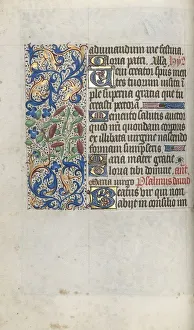 adiuuandum me festina
Gloria patri. Alla.
Veni creator spiritus men
tes tuorum visita im
ple superna gratia que tu
creasti pectora
Memento salutis auctor
quod nostri quondam corporis
ex illibata virgine
nascendo formam sumpseris
Maria mater gratie
Gloria tibi domine
Maria virgo Psalmus dauid
Beatus vir qui non
abiit in consilio im